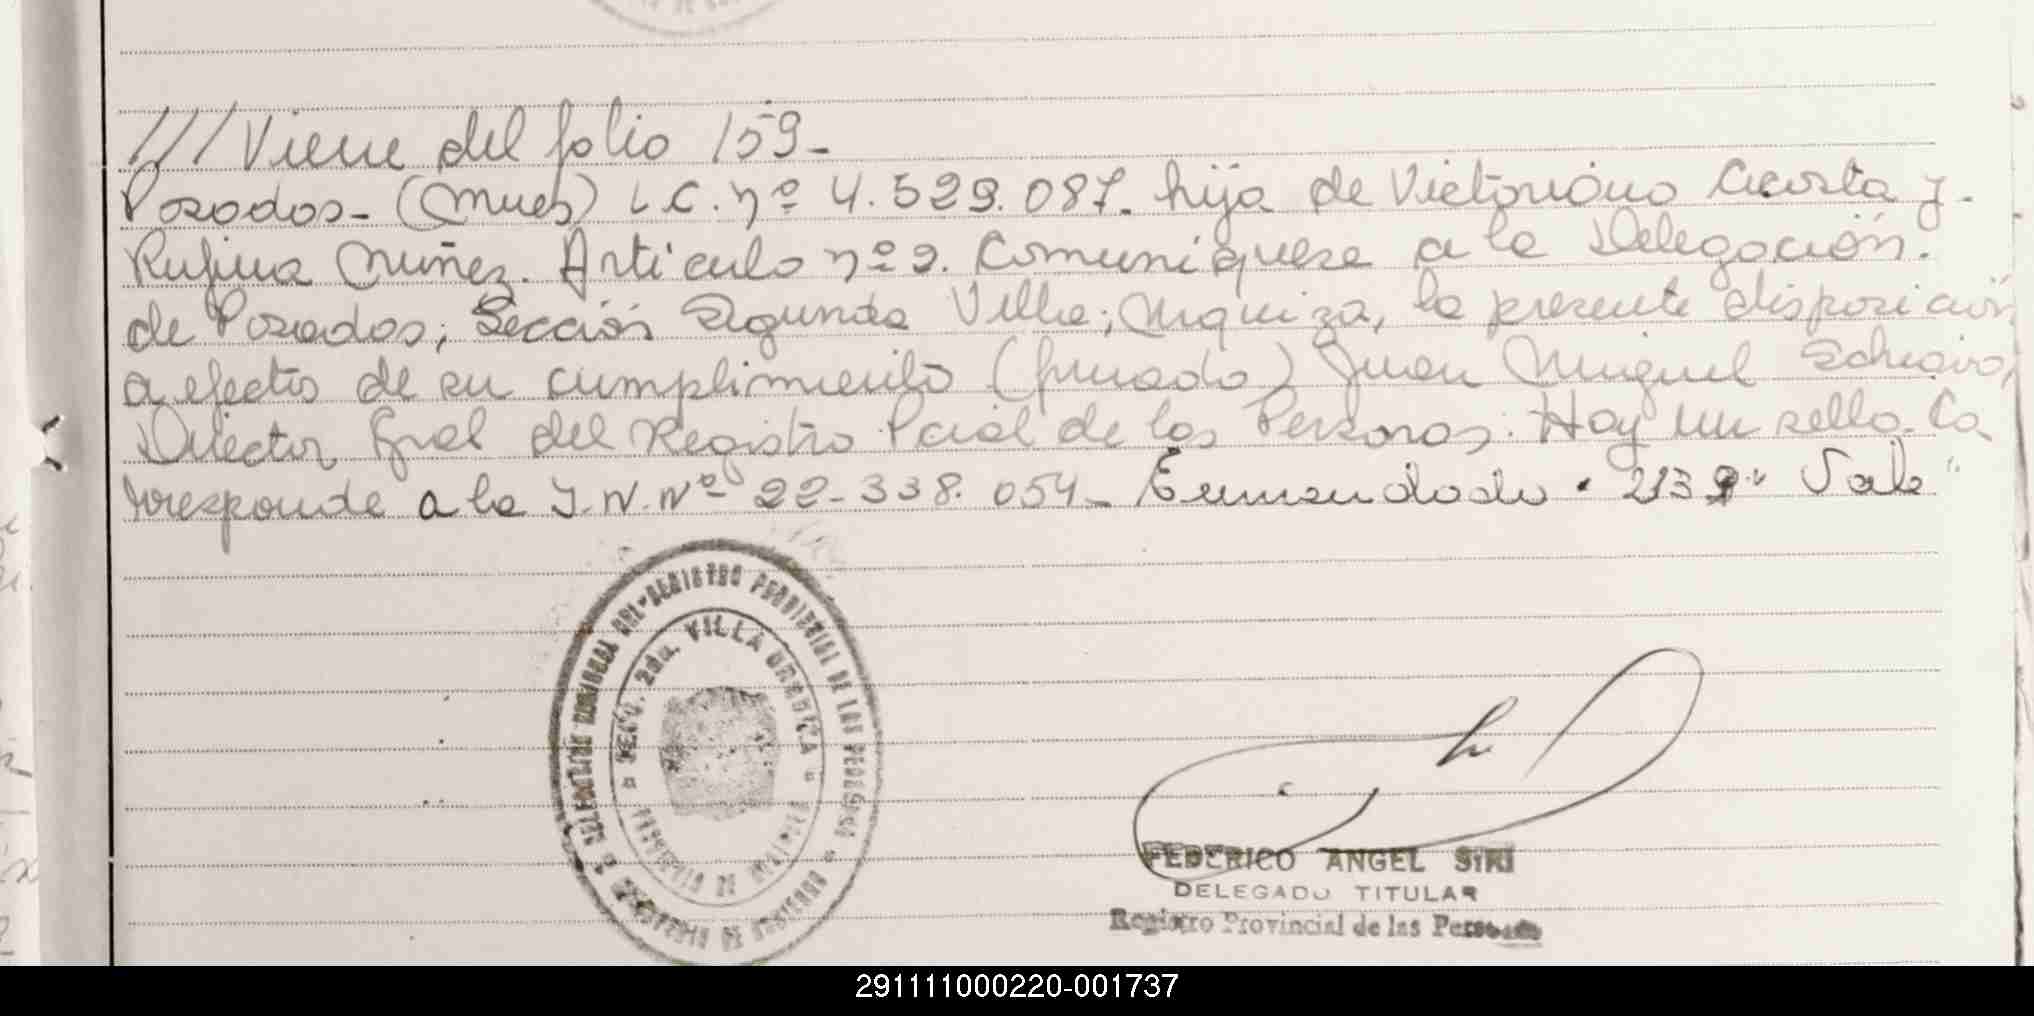 ///Viene del folio 159-
Posadas- (Mnes) L.C. nº 4.529.087- hija de Victoriano Acosta y-
Rufina Nuñez. Articulo nº 2. Comuniquese a la Delegación.
de Posadas; Sección Segunda Villa; Urquiza, la presente disposición
a efectos de su cumplimiento (firmado) Juan Miguel Schiavo,
Director Gral del Registro Pcial de las Personas. Hay un sello. Co-
rresponde a la I.N. Nº 22-338.054- Enmendado "2139" Vale"
REGISTRO PROVINCIAL DE LAS PERSONAS
SECC. 2da. VILLA URQUIZA
PROVINCIA DE MISIONES
MINISTERIO DE GOBIERNO
FEDERICO ANGEL SIRI
DELEGADO TITULAR
Registro Provincial de las Personas
291111000220-001737